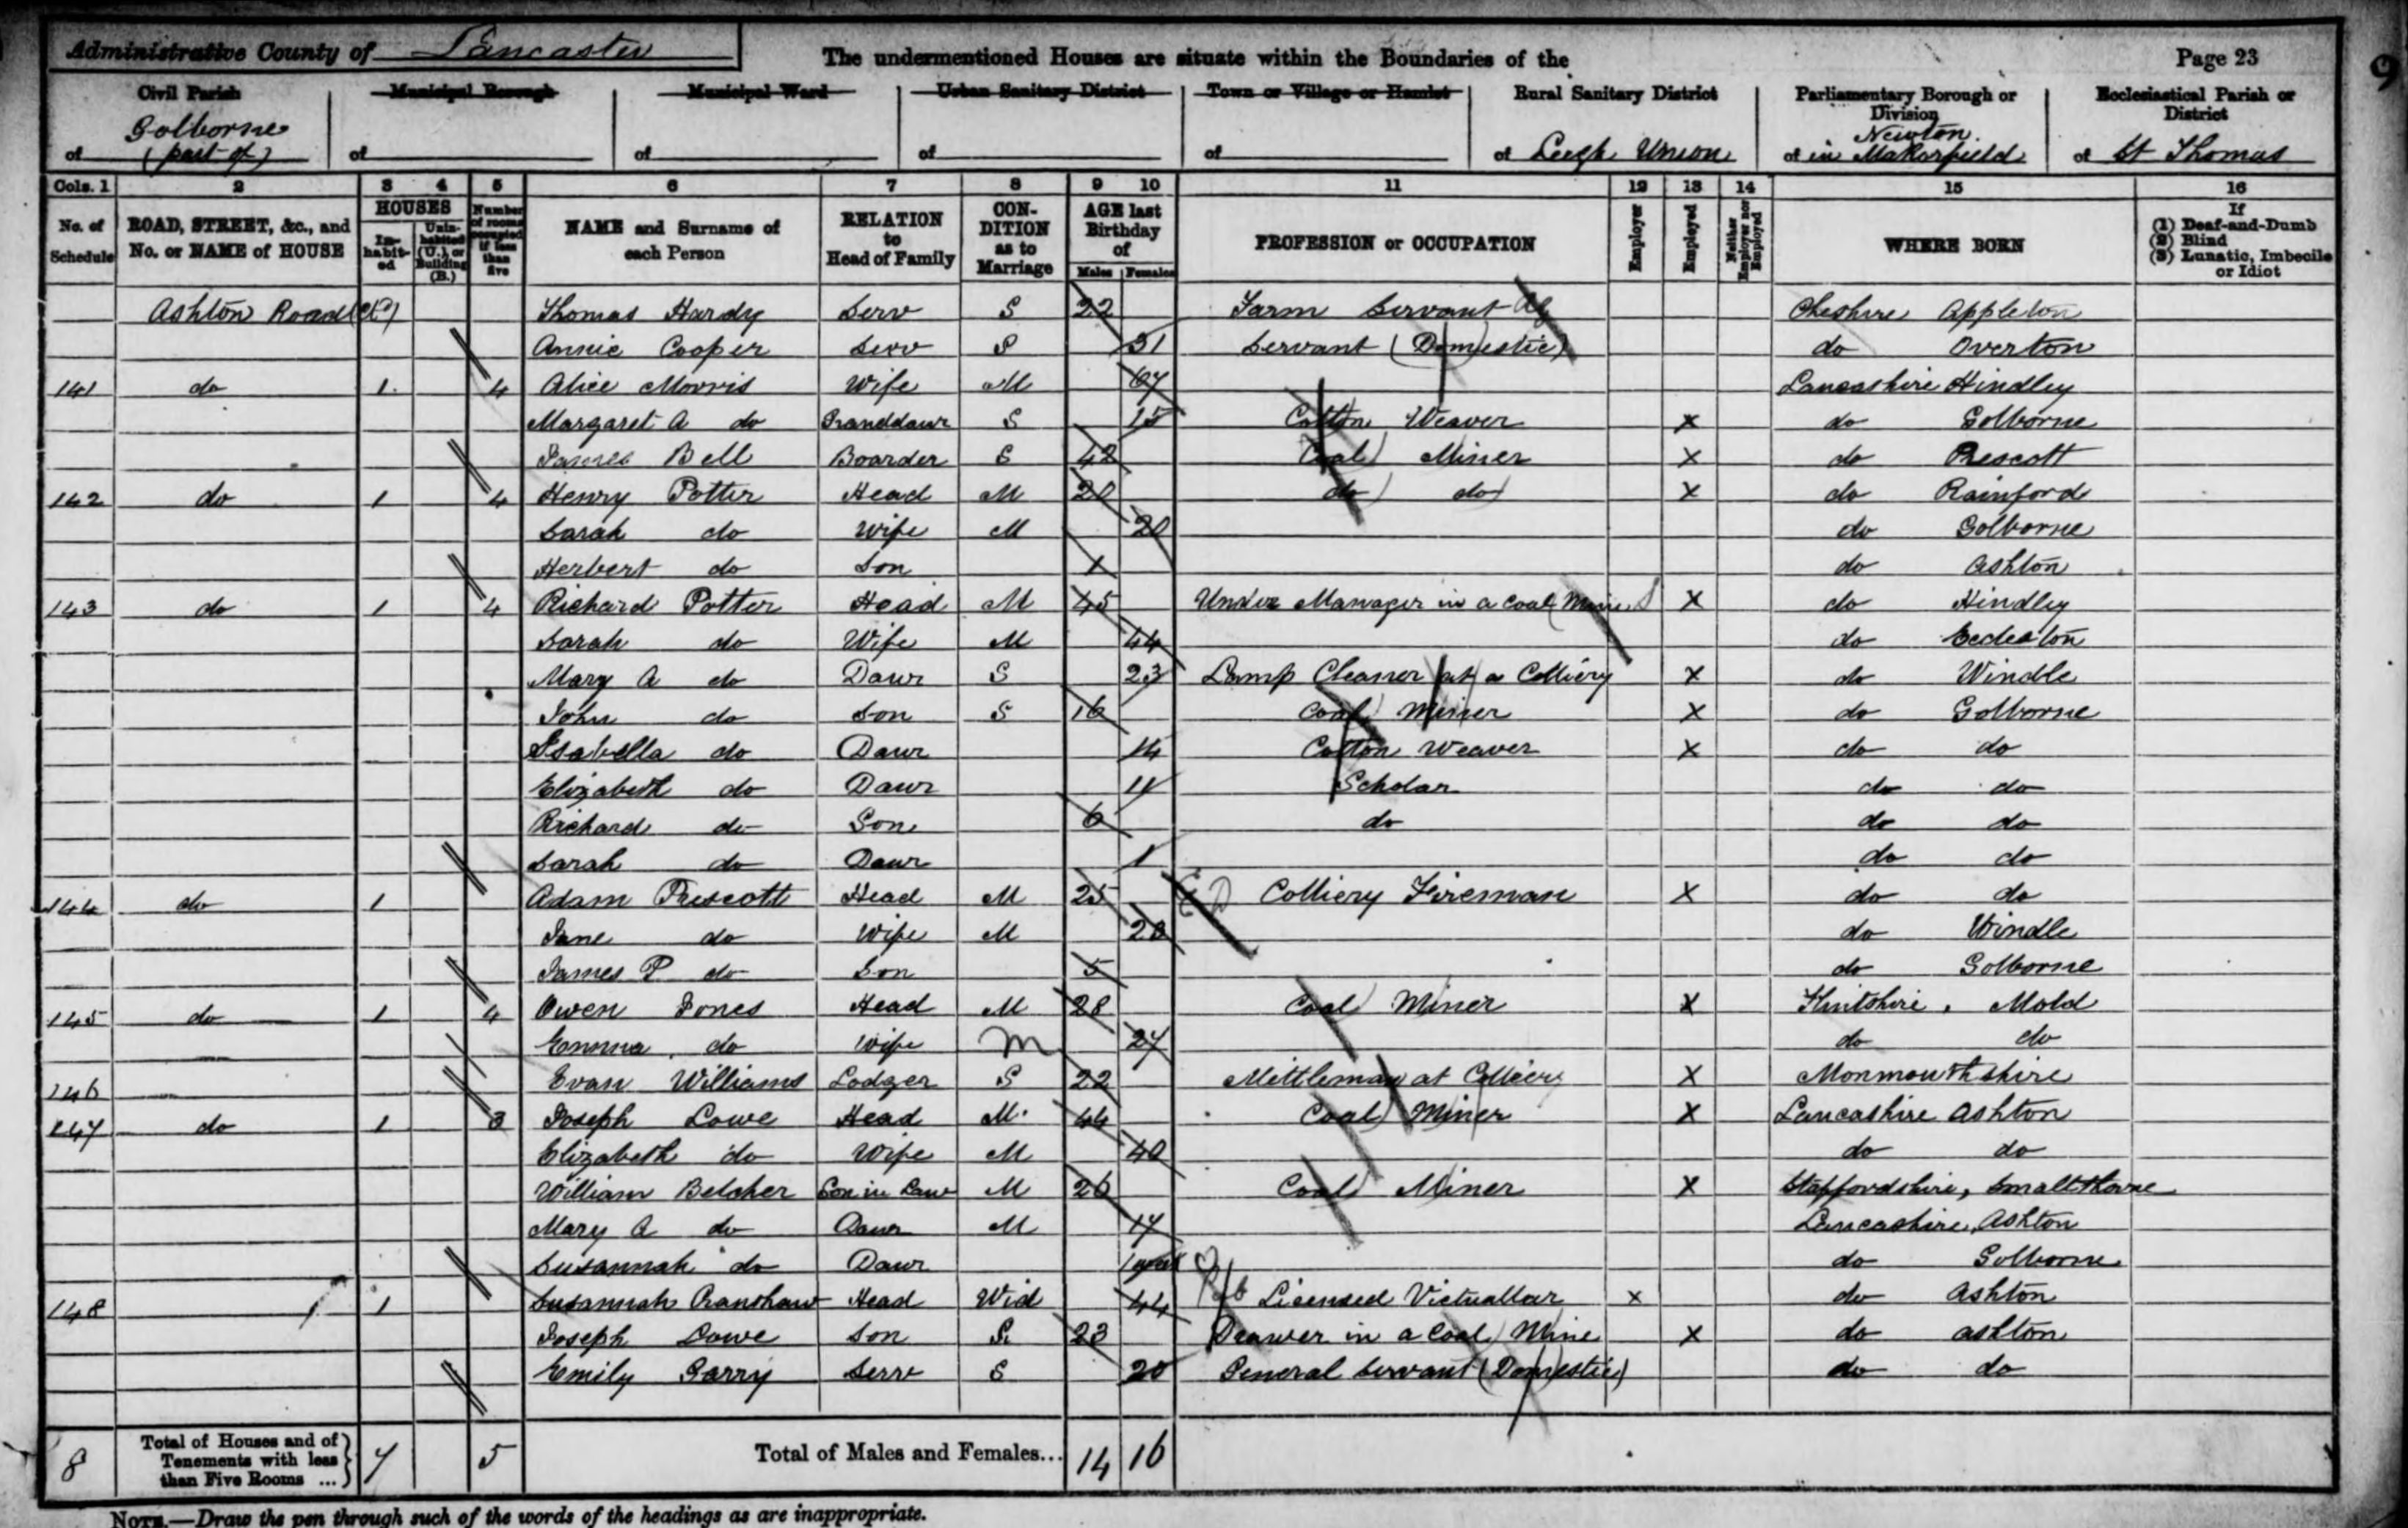 Administrative County of Lancaster
The undermentioned Houses are situate within the Boundaries of the
Page 23
9
Civil Parish
of Golborne (part of)
Municipal Borough
of
Municipal Ward
of
Urban Sanitary District
of
Town or Village or Hamlet
of
Rural Sanitary District
of Leigh Union
Parliamentary Borough or Division
of Newton in Makerfield
Ecclesiastical Parish or District
of St Thomas
Cols. 1 2 3 4 5 6 7 8 9 10 11 12 13 14 15 16
No. of Schedule
ROAD, STREET, &c., and No. or NAME of HOUSE
HOUSES
In-habit-ed
Unin-habited (U.), or Building (B.)
Number of rooms occupied if less than five
NAME and Surname of each Person
RELATION to Head of Family
CON-DITION as to Marriage
AGE last Birthday of
Males Females
PROFESSION or OCCUPATION
Employer
Employed
Neither Employer nor Employed
WHERE BORN
If
(1) Deaf-and-Dumb
(2) Blind
(3) Lunatic, Imbecile or Idiot
Ashton Road Thomas Hardy Serv S 22 Farm Servant Ag Cheshire Appleton
Annie Cooper Serv S 31 Servant (Domestic) do Overton
141 do 1 4 Alice Morris Wife M 67 Lancashire Hindley
Margaret A do Granddaur S 15 Cotton Weaver X do Golborne
James Bell Boarder S 42 Coal Miner X do Prescott
142 do 1 4 Henry Potter Head M 20 do do X do Rainford
Sarah do Wife M 20 do Golborne
Herbert do Son 1 do Ashton
143 do 1 4 Richard Potter Head M 45 Under Manager in a Coal Mine X do Hindley
Sarah do Wife M 44 do Eccleston
Mary A do Daur S 23 Lamp Cleaner at a Colliery X do Windle
John do Son S 16 Coal Miner X do Golborne
Isabella do Daur 14 Cotton Weaver X do do
Elizabeth do Daur 11 Scholar do do
Richard do Son 6 do do do
Sarah do Daur 1 do do
144 do 1 Adam Prescott Head M 25 Colliery Fireman X do do
Jane do Wife M 28 do Windle
James P do Son 5 do Golborne
145 do 1 4 Owen Jones Head M 28 Coal Miner X Flintshire, Mold
Emma do Wife M 27 do do
146 Evan Williams Lodger S 22 Mettleman at Colliery X Monmouthshire
147 do 1 3 Joseph Lowe Head M 44 Coal Miner X Lancashire Ashton
Elizabeth do Wife M 40 do do
William Belcher Son in Law M 26 Coal Miner X Staffordshire, Smallthorne
Mary A do Daur M 17 Lancashire, Ashton
Susannah do Daur do Golborne
148 1 1 Susannah Cranshaw Head Wid 44 Pub Licensed Victuallar X do Ashton
Joseph Lowe Son S 23 Drawer in a Coal Mine X do Ashton
Emily Garry Serv S 20 General Servant (Domestic) do do
8 Total of Houses and of Tenements with less than Five Rooms ... 7 5
Total of Males and Females... 14 16
NOTE.—Draw the pen through such of the words of the headings as are inappropriate.